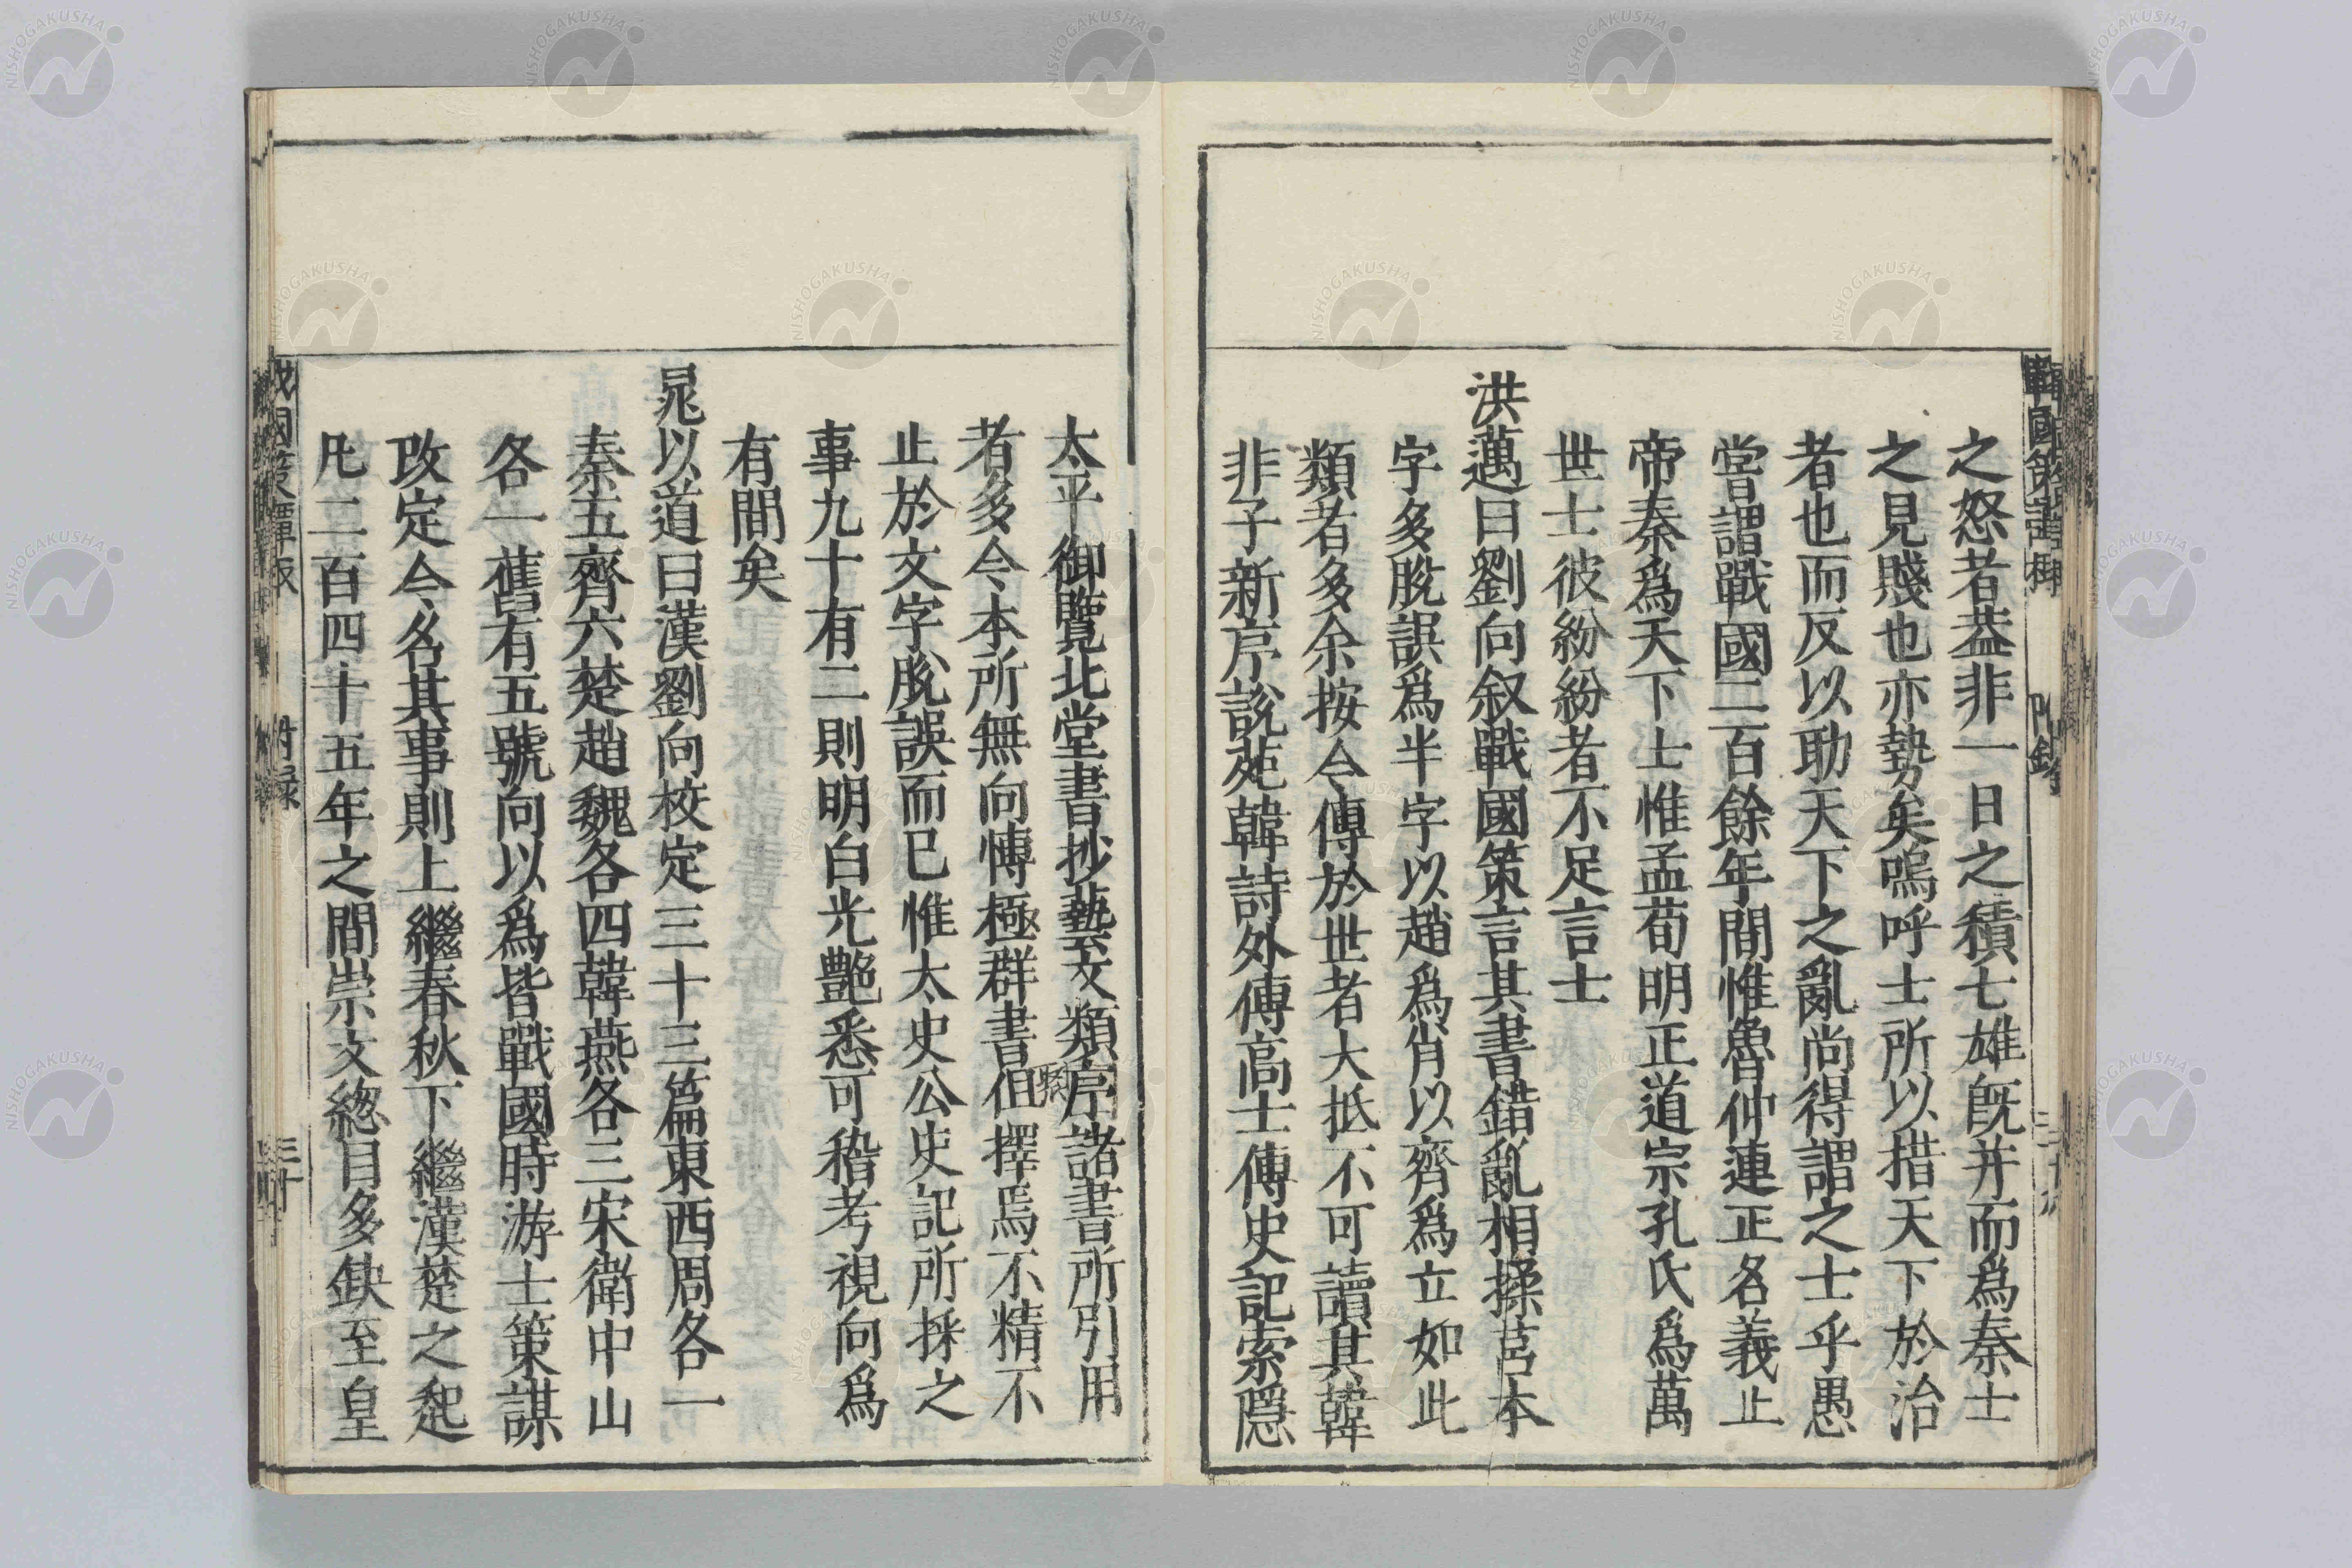 之怒者蓋非一日之積七雄旣并而爲秦士
之見賤也亦勢矣嗚呼士所以措天下於治
者也而反以助天下之亂尚得謂之士乎愚
嘗謂戰國二百餘年間惟魯仲連正名義止
帝秦爲天下士惟孟荀明正道宗孔氏爲萬
世士彼紛紛者不足言士
洪邁曰劉向叙戰國策言其書錯亂相揉莒本
字多脫誤爲半字以趙爲肖以齊爲立如此
類者多余按今傳於世者大抵不可讀其韓
非子新序說苑韓詩外傳高士傳史記索隱
太平御覽北堂書抄藝文類序諸書所引用
聚
者多今本所無向博極群書伹擇焉不精不
止於文字脫誤而已惟太史公史記所採之
事九十有二則明白光艷悉可稽考視向爲
有間矣
晁以道曰漢劉向校定三十三篇東西周各一
秦五齊六楚趙魏各四韓燕各三宋衛中山
各一舊有五號向以爲皆戰國時游士策謀
改定今名其事則上繼春秋下繼漢楚之起
凡二百四十五年之間崇文總目多缺至皇
戰國策譚棷 附錄 三十
NISHOGAKUSHA